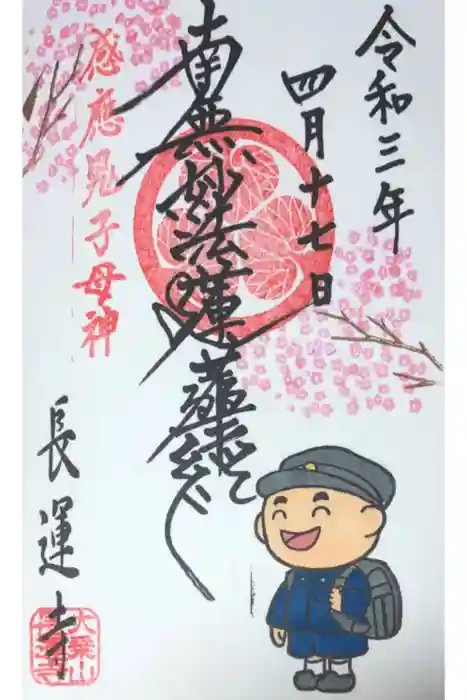 令和三年
四月十七日
南無妙法蓮華経
感應鬼子母神
長運寺